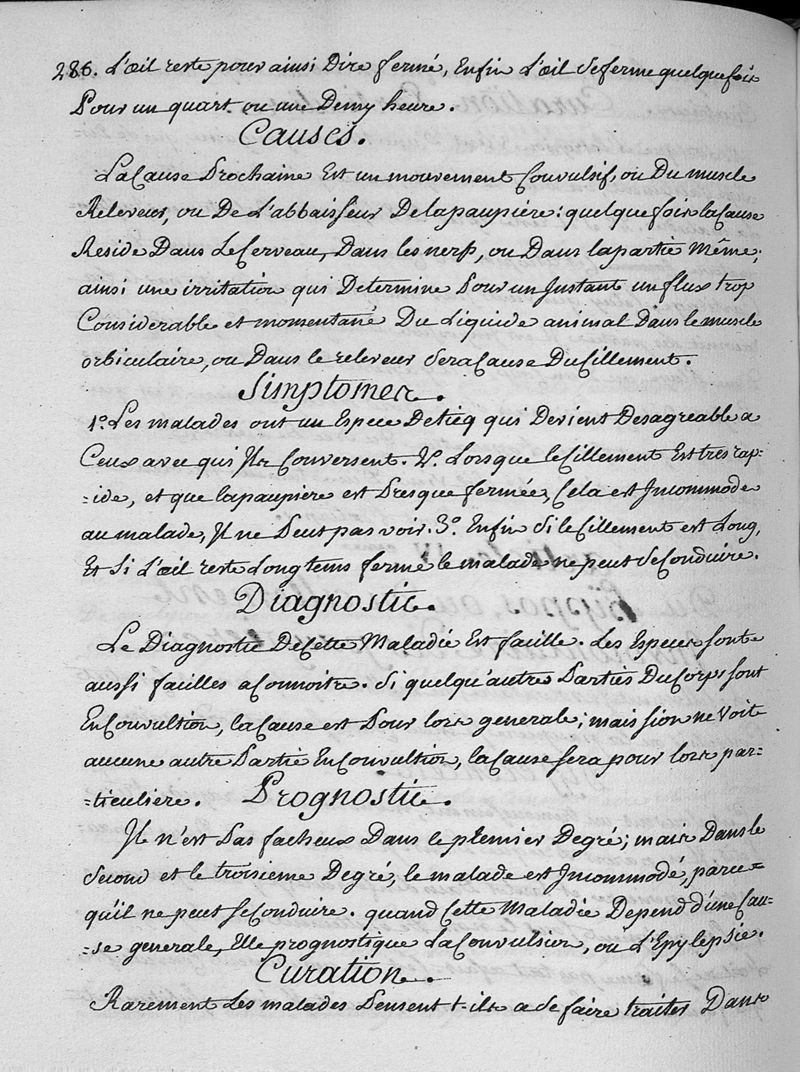 286. L'œil reste pour ainsi Dire fermé, Enfin L'œil se ferme quelque fois
Pour un quart ou une Demy heure.
Causes.
La Cause Prochaine Est un mouvement Convulsif, ou Du muscle
Releveur, ou De L'abbaisseur De la paupière: quelque fois la Cause
Reside Dans Le Cerveau, Dans les nerfs, ou Dans la partie Même;
ainsi une irritation qui Determine Pour un Instant un flux trop
Considerable et momentané Du Liquide animal Dans le muscle
orbiculaire, ou Dans le releveur Sera Cause Du Cillement.
Simptomes.
1.º Les malades ont un Espece De ticq qui Devient Desagreable a
Ceux avec qui Ils Conversent. 2.º Lorsque le Cillement Est tres rap-
-ide, et que la paupière est Presque fermée, Cela est Incommode
au malade, Il ne Peut pas voir. 3.º Enfin Si le Cillement est Long,
Et Si L'œil reste Longtems fermé le malade ne peut se Conduire.
Diagnostic.
Le Diagnostic De Cette Maladie Est facille. Les Especes sont
aussi facilles a Connoitre. Si quelqu'autres Parties Du Corps sont
En Convultion, la Cause est Pour lors generale; mais si on ne Voit
aucune autre Partie En Convultion, la Cause sera pour lors par-
-ticuliere. Prognostic.
Il n'est Pas facheux Dans le premier Degré; mais Dans le
Second et le troisieme Degré, le malade est Incommodé, parce=
qu'il ne peut se Conduire. quand Cette Maladie Depend d'une Cau-
-se generale, Elle prognostique La Convulsion, ou L'Epylepsie.
Curation.
Rarement Les malades Pensent t-ils a se faire traiter Dans